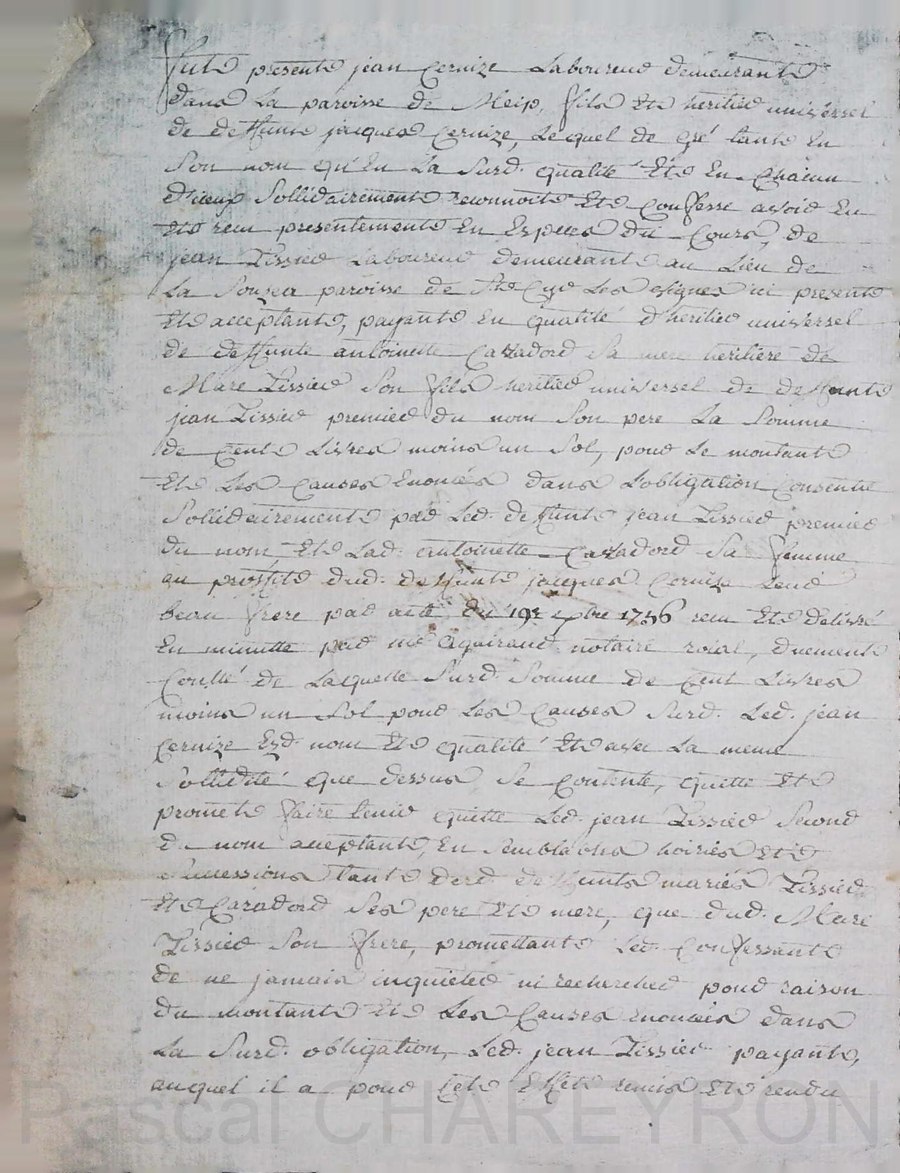 Fute présente jean Cernize Laboureur demeurant
dans La paroisse de Meip, fils Et heritier universel
de deffunt jacques Cernize, Lequel de gré tant En
Son nom qu'En La Surd. qualité Et En Chacun
d'iceux Sollidairement reconnoit Et Confesse avoir Eu
Et reçu presentement En Especes du Cours, de
jean Tissier Laboureur demeurant au Lieu de
La paroisse de St Cyr Les ici present
Et acceptant, payant En qualité d'heritier universel
de deffunte antoinette Cazadord Sa mere heritiere de
Marc Tissier Son fils heritier universel de deffunt
jean Tissier premier du nom Son pere La Somme
de Cent Livres moins un Sol, pour Le montant
Et Les Causes Enoncés dans L'obligation Consentie
Sollidairement par Led. deffunt jean Tissier premier
du nom Et Lad. antoinette Cazadord Sa femme
au proffit dud. deffunt jacques Cernize Leur
beau frere par acte du 1756 reçu Et delivré
En minutte par me notaire roial, duement
Conllé de Laquelle Surd. Somme de Cent Livres
moins un Sol pour Les Causes Surd. Led. jean
Cernize Esd. nom Et qualité Et avec La meme
Sollidité que dessus, Se Contente, quitte Et
promet faire tenir quitte Led. jean Tissier Second
du nom acceptant, En Semble Les hoiries Et
Successions tant desd. deffunts mariés Tissier
Et Cazadord Ses pere Et mere, que dud. Marc
Tissier Son frere, promettant Led. Confessant
de ne jamais inquieter ni rechercher pour raison
du montant Et Les Causes Enoncées dans
La Surd. obligation, Led. jean Tissier payant,
auquel il a pour Cet Effet remis Et rendu
Pascal CHAREYRON